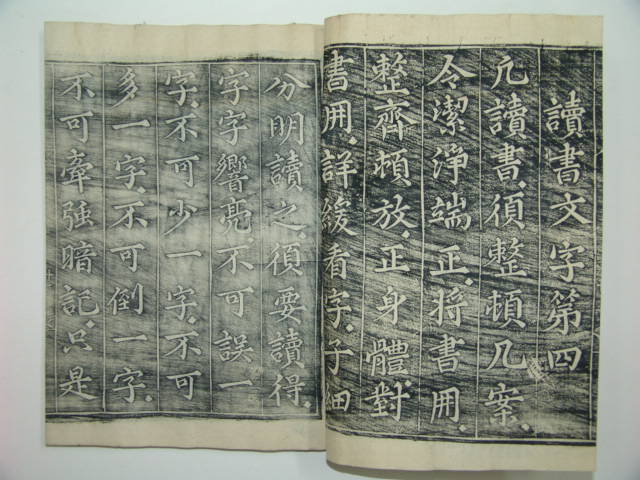 讀書文字第四
凡讀書、須整頓几案、
令潔淨端正、將書冊、
整齊頓放、正身體、對
書冊、詳緩看字、子細
分明讀之、須要讀得、
字字響亮、不可誤一
字、不可少一字、不可
多一字、不可倒一字、
不可牽強暗記、只是